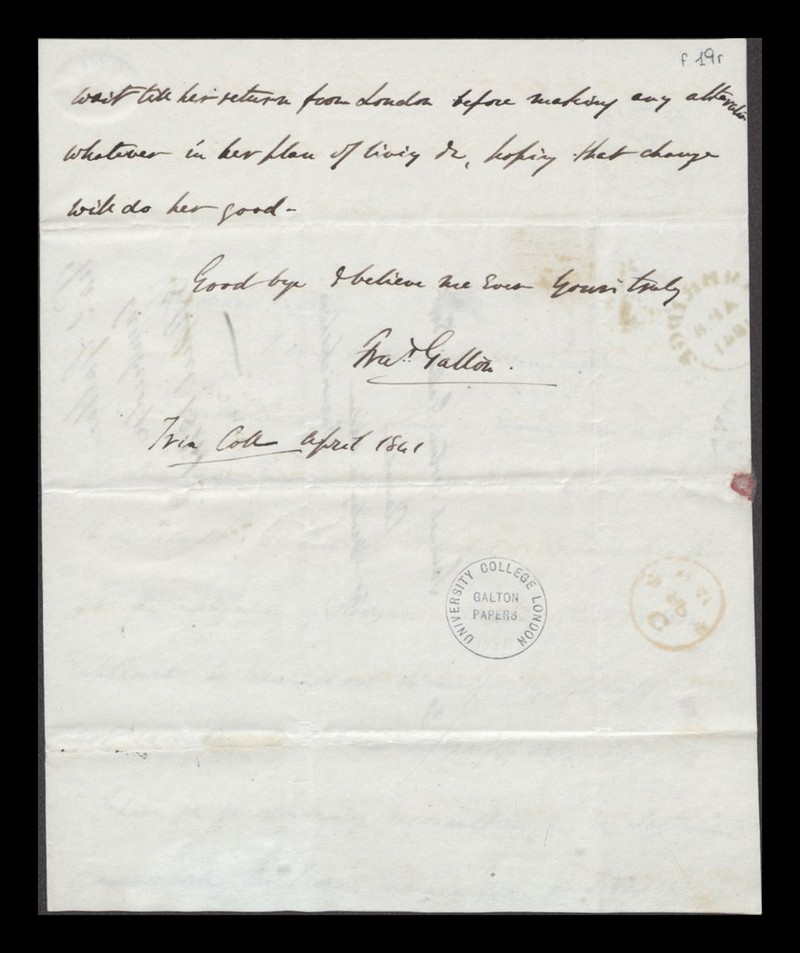 f. 19r
wait till her return from London before making any alteration
whatever in her plan of living &c, hoping that change
will do her good -
Good bye & believe me Ever Yours truly
Fras. Galton.
Trin Coll April 1841
UNIVERSITY COLLEGE LONDON
GALTON
PAPERS